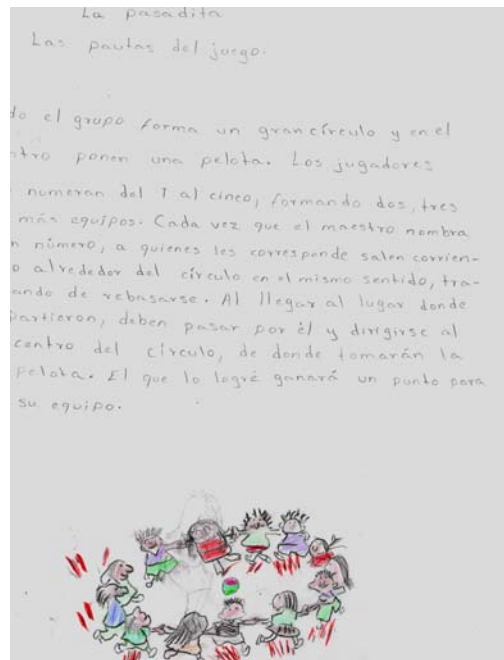 La pasadita
Las pautas del juego.
do el grupo forma un gran círculo y en el
tro ponen una pelota. Los jugadores
numeran del 1 al cinco, formando dos, tres
más equipos. Cada vez que el maestro nombra
n número, a quienes les corresponde salen corrien-
o alrededor del círculo en el mismo sentido, tra-
ando de rebasarse. Al llegar al lugar donde
partieron, deben pasar por él y dirigirse al
centro del círculo, de donde tomarán la
pelota. El que lo logré ganará un punto para
su equipo.